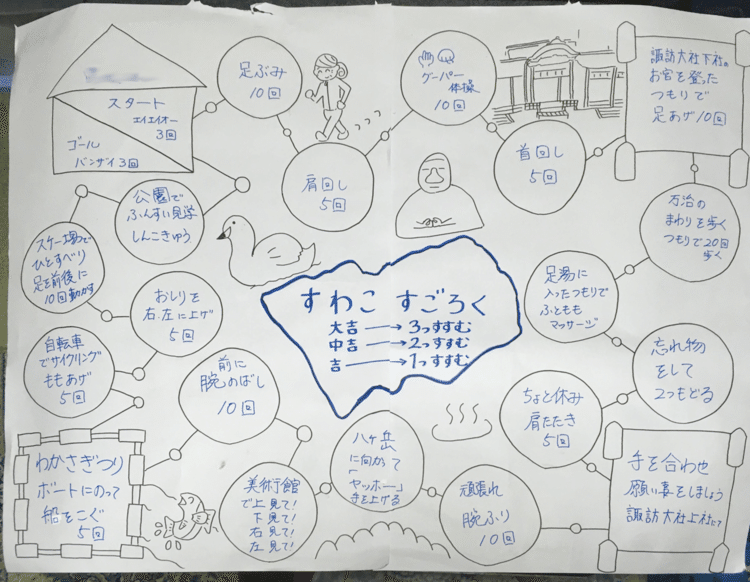 スタート
エイエイオー
3回
ゴール
バンザイ3回
足ぶみ
10回
肩回し
5回
グーパー
体操
10回
首回し
5回
諏訪大社下社の
お宮を登った
つもりで
足あげ10回
万治の
まわりを歩く
つもりで20回
歩く
足湯に
入ったつもりで
ふともも
マッサージ
忘れ物
をして
2つもどる
ちょと休み
肩たたき
5回
手を合わせ
願い事をしましょう
諏訪大社上社にて
頑張れ
腕ふり
10回
八ヶ岳
に向かって
「ヤッホー」
手を上げる
美術館
で上見て!
下見て!
右見て!
左見て!
前に
腕のばし
10回
わかさぎつり
ボートにのって
船をこぐ
5回
自転車
でサイクリング
ももあげ
5回
おしりを
右.左に上げ
5回
スケート場で
ひとすべり
足を前後に
10回動かす
公園で
ふんすい見学
しんこきゅう
すわこ すごろく
大吉→3つすすむ
中吉→2つすすむ
吉→1つすすむ